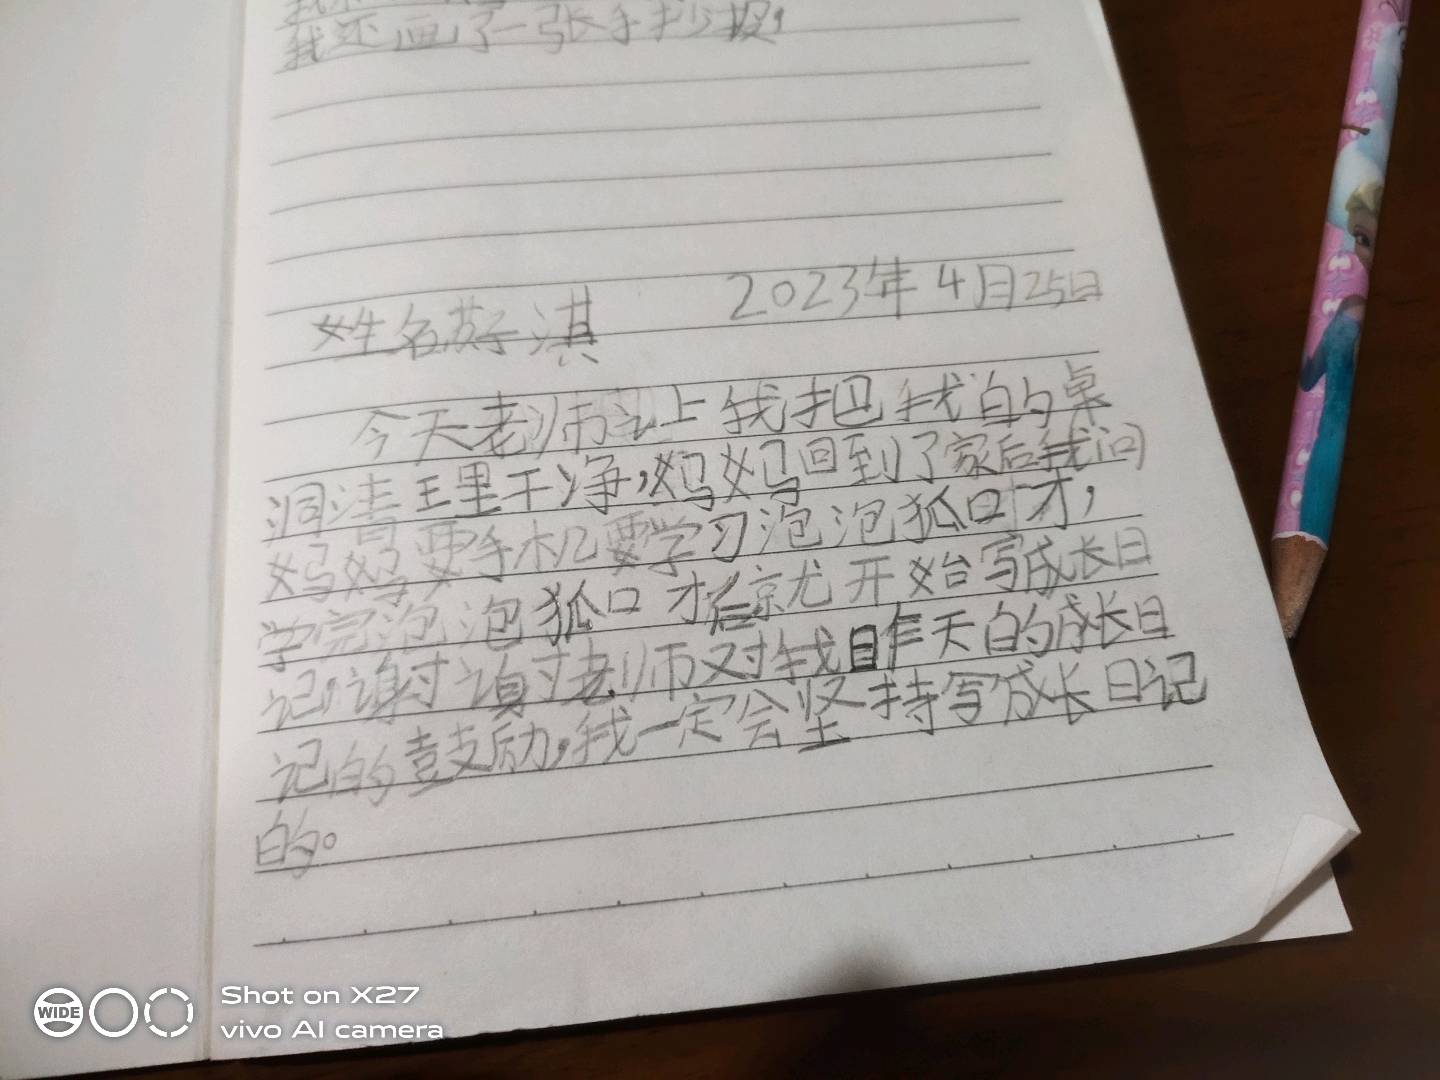 我还画了一张手抄报,
2023年4月25日
姓名 淇
今天老师让我把我的桌
洞清理干净,妈妈回到了家后我问
妈妈要手机要学习泡泡狐口才,
学完泡泡狐口才后就开始写成长日
记,谢谢老师对我昨天的成长日
记的鼓励,我一定会坚持写成长日记
的。
WIDE
Shot on X27
vivo AI camera